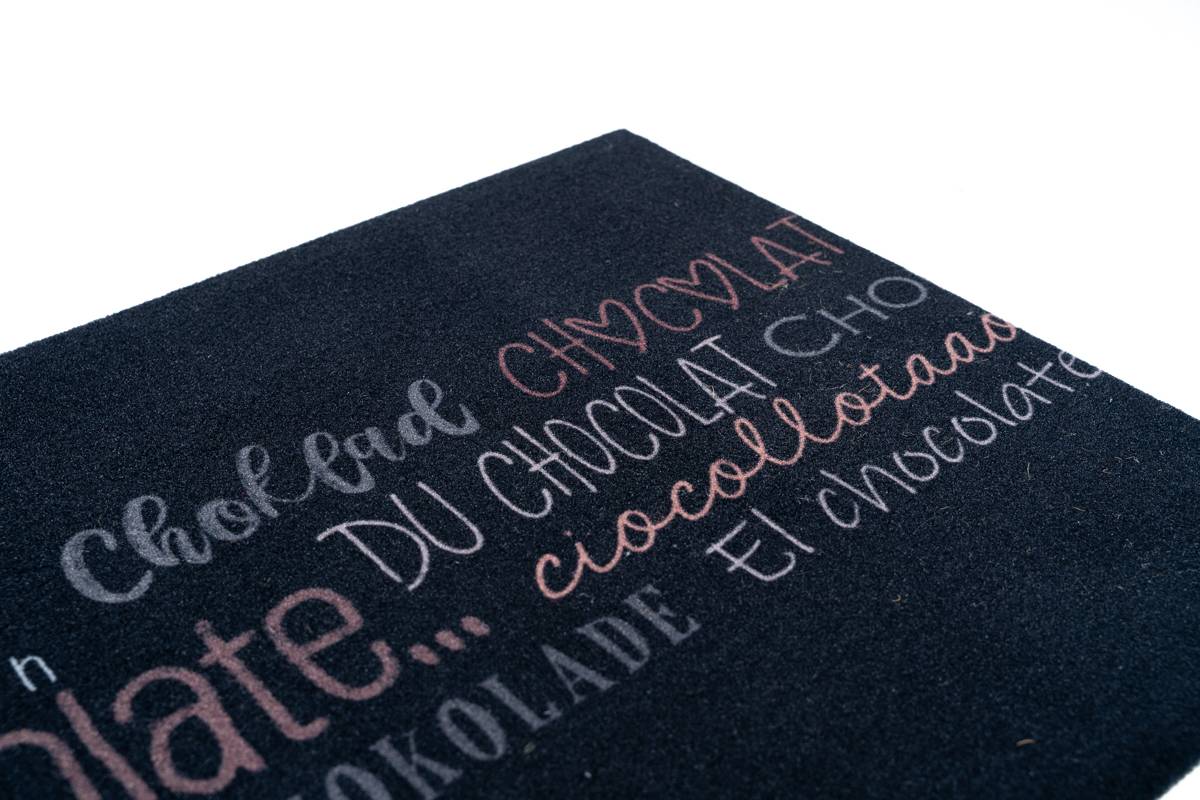 Choklad CH♡C♡LAT
DU CHOCOLAT CHO
n
late... ciocollotaao
OKOLADE El chocolate